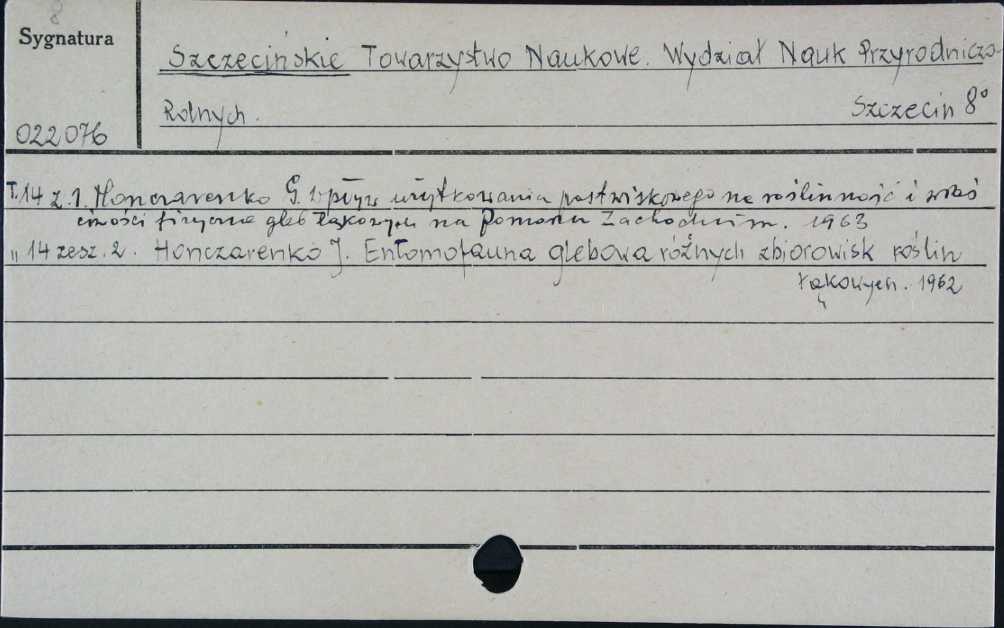 8
Sygnatura
Szczecińskie Towarzystwo Naukowe. Wydział Nauk Przyrodniczo-
Rolnych.
Szczecin 8°
022076
T. 14 z. 1. Honczarenko G. Wpływ użytkowania pastwiskowego na roślinność i właś
ciwości fizyczne gleb łąkowych na Pomorzu Zachodnim. 1963
„ 14 zesz. 2. Honczarenko J. Entomofauna glebowa różnych zbiorowisk roślin
łąkowych. 1962